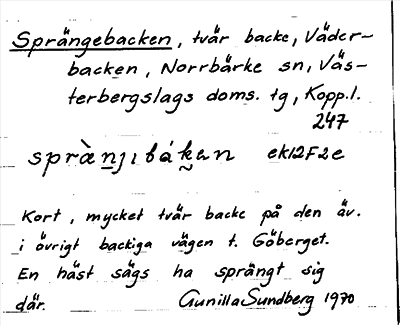 Sprängebacken, tvär backe, Väder-
backen, Norrbärke sn, Väs-
terbergslags doms. tg, Kopp.l.
247
ek12F2e
Kort, mycket tvär backe på den äv.
i övrigt backiga vägen t. Göberget.
En häst sägs ha sprängt sig
där. Gunilla Sundberg 1970